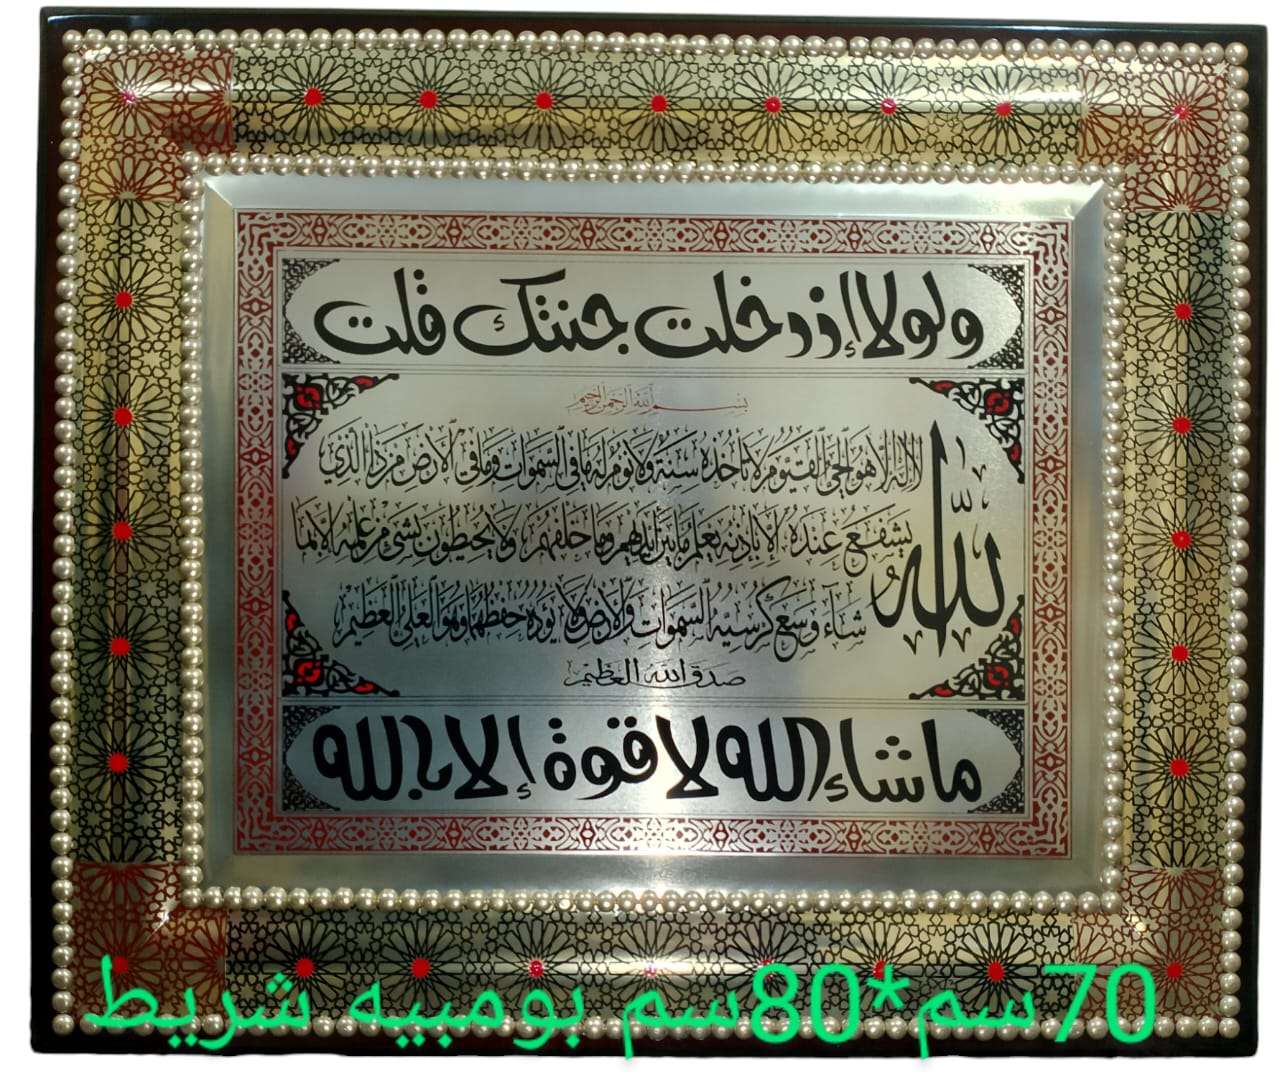 ولولا إذ دخلت جنتك قلت
بسم الله الرحمن الرحيم
الله لا إله إلا هو الحي القيوم لا تأخذه سنة ولا نوم له ما في السموات وما في الأرض من ذا الذي
يشفع عنده إلا بإذنه يعلم ما بين أيديهم وما خلفهم ولا يحيطون بشيء من علمه إلا بما
شاء وسع كرسيه السموات والأرض ولا يؤده حفظهما وهو العلي العظيم
صدق الله العظيم
ما شاء الله لا قوة إلا بالله
70سم*80سم بومبيه شريط